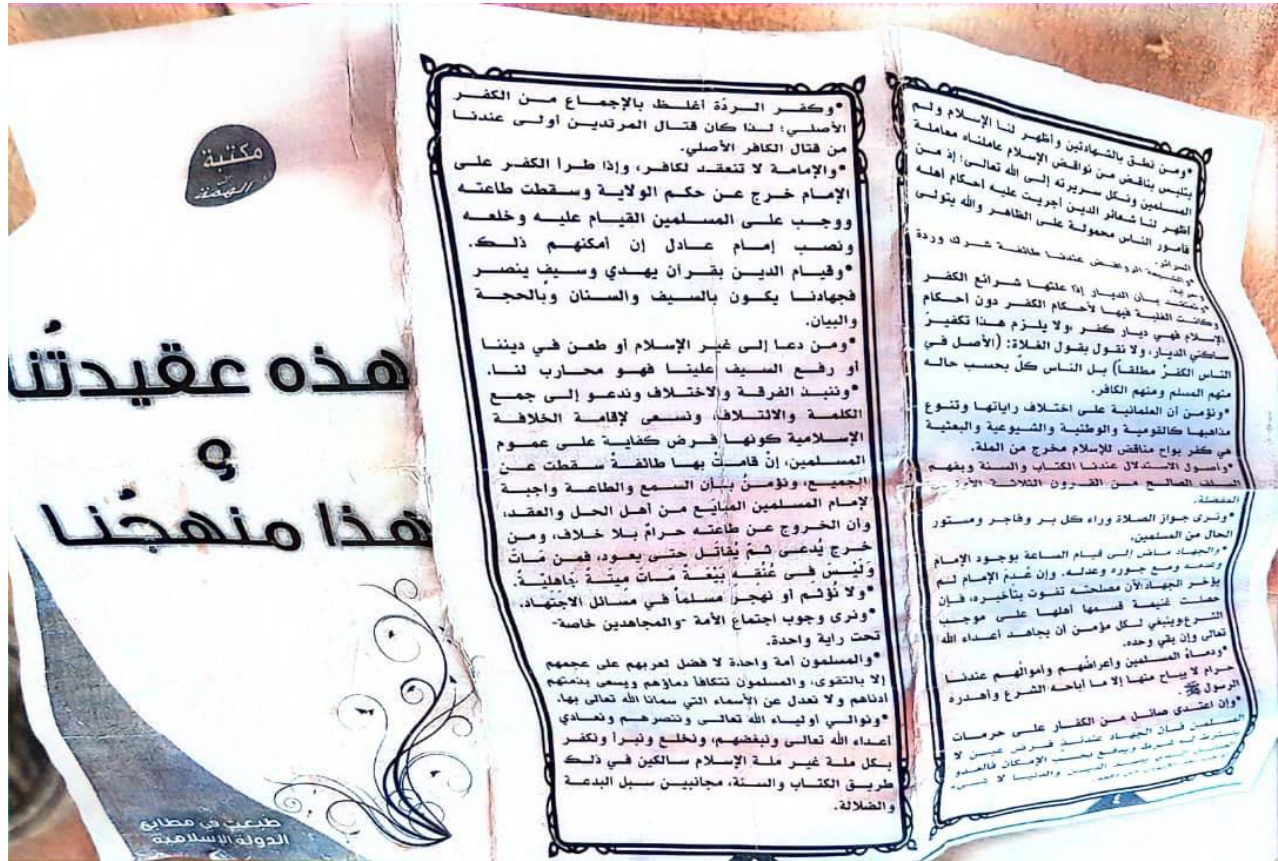 •ومن نطق بالشهادتين وأظهر لنا الإسلام ولم
يتلبس بناقض من نواقض الإسلام عاملناه معاملة
المسلمين ونكل سريرته إلى الله تعالى؛ إذ من
أظهر لنا شعائر الدين أجريت عليه أحكام أهله
فأمور الناس محمولة على الظاهر والله يتولى
السرائر.
•والشيعة الروافض عندنا طائفة شرك وردة
وحرابة.
•ونعتقد بأن الديار إذا علتها شرائع الكفر
وكانت الغلبة فيها لأحكام الكفر دون أحكام
الإسلام فهي ديار كفر ،ولا يلزم هذا تكفيرُ
ساكني الديار، ولا نقول بقول الغلاة: (الأصل في
الناس الكفرُ مطلقاً) بل الناس كلّ بحسب حاله
منهم المسلم ومنهم الكافر.
•ونؤمن أن العلمانية على اختلاف راياتها وتنوع
مذاهبها كالقومية والوطنية والشيوعية والبعثية
هي كفر بواح مناقض للإسلام مخرج من الملة.
•وأصول الاستدلال عندنا الكتاب والسنة وبفهم
السلف الصالح من القرون الثلاثة الأولى
المفضلة.
•ونرى جواز الصلاة وراء كل بر وفاجر ومستور
الحال من المسلمين.
•والجهاد ماض إلى قيام الساعة بوجود الإمام
وعدمه ومع جوره وعدله. وإن عُدمَ الإمام لم
يؤخر الجهاد؛لأن مصلحته تفوت بتأخيره، فإن
حصلت غنيمة قسمها أهلها على موجب
الشرع،وينبغي لكل مؤمن أن يجاهد أعداء الله
تعالى وإن بقي وحده.
•ودماءُ المسلمين وأعراضُهم وأموالُهم عندنا
حرام لا يباح منها إلا ما أباحه الشرع وأهدره
الرسول ﷺ.
•وإن اعتدى صائل من الكفار على حرمات
المسلمين فإن الجهاد عندئذ فرض عين لا
يشترط له شرط ويدفع بحسب الإمكان فالعدو
الصائل الذي يفسد الدين والدنيا لا شيء
٤
•وكفر الردّة أغلظ بالإجماع من الكفر
الأصلي؛ لذا كان قتال المرتدين أولى عندنا
من قتال الكافر الأصلي.
•والإمامة لا تنعقد لكافر، وإذا طرأ الكفر على
الإمام خرج عن حكم الولاية وسقطت طاعته
ووجب على المسلمين القيام عليه وخلعه
ونصب إمام عادل إن أمكنهم ذلك.
•وقيام الدين بقرآن يهدي وسيف ينصر
فجهادنا يكون بالسيف والسنان وبالحجة
والبيان.
•ومن دعا إلى غير الإسلام أو طعن في ديننا
أو رفع السيف علينا فهو محارب لنا.
•وننبذ الفرقة والاختلاف وندعو إلى جمع
الكلمة والائتلاف ونسعى لإقامة الخلافة
الإسلامية كونها فرض كفاية على عموم
المسلمين، إنْ قامت بها طائفةٌ سقطت عن
الجميع، ونؤمنُ بأن السمع والطاعة واجبة
لإمام المسلمين المبايَع من أهل الحل والعقد،
وأن الخروج عن طاعته حرامٌ بلا خلاف، ومن
خرج يُدعى ثمّ يُقاتل حتى يعود، فمن مَاتَ
وَلَيْسَ في عُنُقه بَيْعَةٌ مات مِيتةً جَاهِليّةً.
•ولا نُؤثم أو نهجر مسلماً في مسائل الاجتهاد.
•ونرى وجوب اجتماع الأمة -والمجاهدين خاصة-
تحت راية واحدة.
•والمسلمون أمة واحدة لا فضل لعربهم على عجمهم
إلا بالتقوى، والمسلمون تتكافأ دماؤهم ويسعى بذمتهم
أدناهم ولا نعدل عن الأسماء التي سمانا الله تعالى بها.
•ونوالي أولياء الله تعالى وننصرهم ونعادي
أعداء الله تعالى ونبغضهم، ونخلع ونبرأ ونكفر
بكل ملة غير ملة الإسلام سالكين في ذلك
طريق الكتاب والسنة، مجانبين سبل البدعة
والضلالة.
مكتبة
الهمة
هذه عقيدتُنا
و
هذا منهجُنا
طبعت في مطابع
الدولة الإسلامية